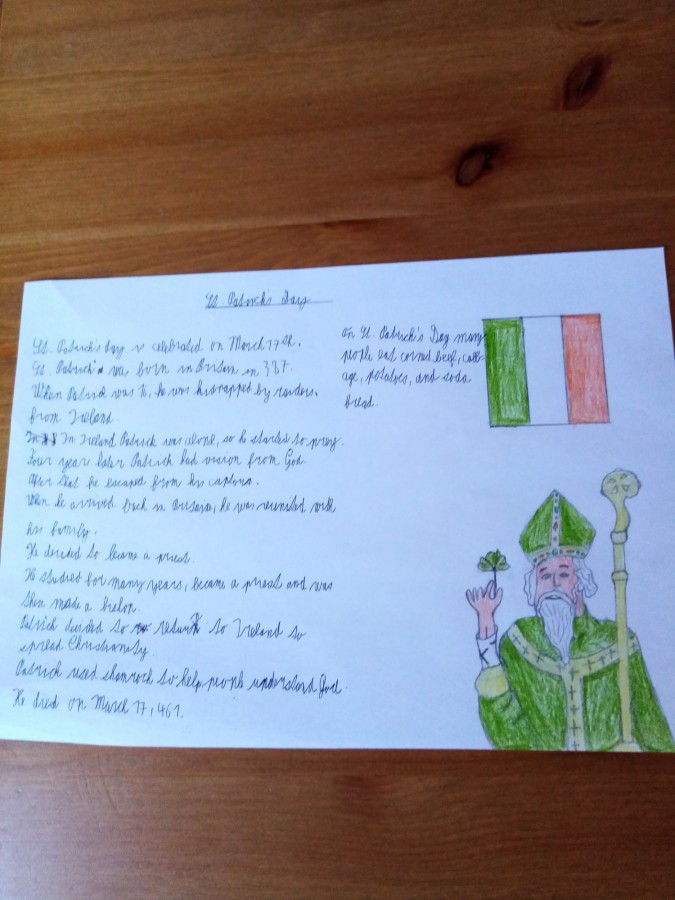 St. Patrick's Day
St. Patrick's day is celebrated on March 17th.
St. Patrick was born in Britain in 387.
When Patrick was 16, he was kidnapped by raiders
from Ireland.
In Ireland Patrick was alone, so he started to pray.
Four year later Patrick had vision from God.
After that he escaped from his captors.
When he arrived back in Britain, he was reunited with
his family.
He decided to became a priest.
He studied for many years, became a priest and was
then made a bishop
Patrick decided to return to Ireland to
spread Christianity.
Patrick used shamrock to help people understand God.
He died on March 17, 461.
On St. Patrick's Day many
people eat corned beef, cabb-
age, potatoes, and soda
bread.